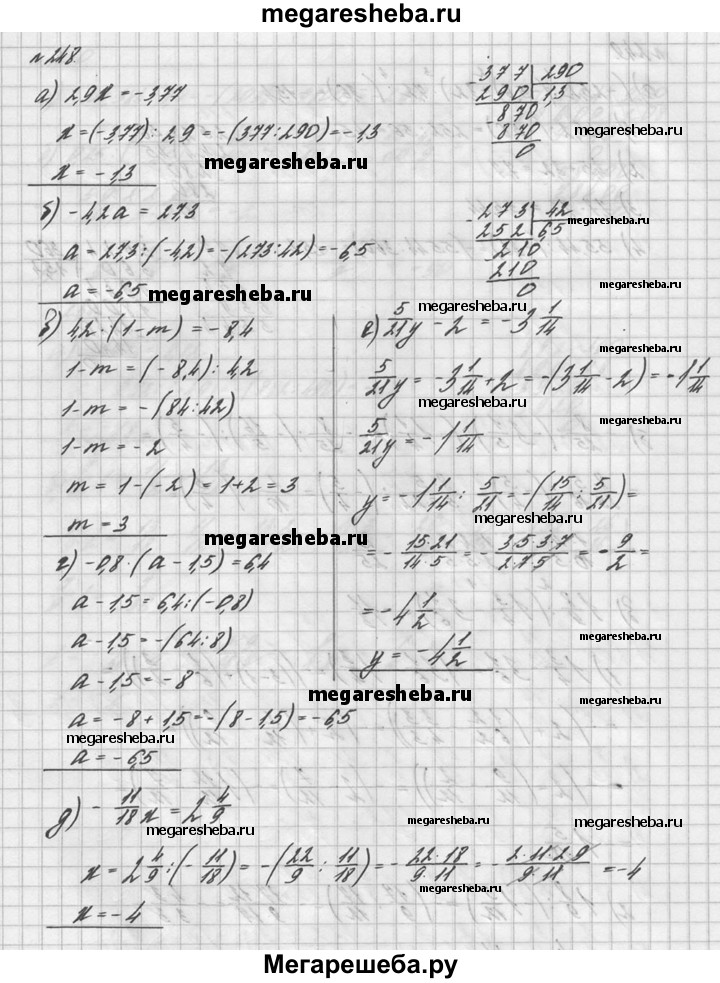 megaresheba.ru
№248
а) 2,9x = -3,77
x = (-3,77) : 2,9 = -(377:290) = -1,3
megaresheba.ru
x = -1,3
377 | 290
290 | 1,3
870
870
0
megaresheba.ru
б) -4,2a = 27,3
a = 27,3 : (-4,2) = -(273:42) = -6,5
a = -6,5
megaresheba.ru
273 | 42
252 | 6,5
megaresheba.ru
210
210
0
megaresheba.ru
в) 4,2 · (1-m) = -8,4
1-m = (-8,4) : 4,2
1-m = -(84:42)
1-m = -2
m = 1-(-2) = 1+2 = 3
m = 3
megaresheba.ru
г) -0,8 · (a - 1,5) = 6,4
a - 1,5 = 6,4 : (-0,8)
a - 1,5 = -(64:8)
a - 1,5 = -8
a = -8 + 1,5 = -(8 - 1,5) = -6,5
megaresheba.ru
a = -6,5
е) 5/21 y - 2 = -3 1/14
megaresheba.ru
5/21 y = -3 1/14 + 2 = -(3 1/14 - 2) = -1 1/14
megaresheba.ru
megaresheba.ru
5/21 y = -1 1/14
y = -1 1/14 : 5/21 = -(15/14 : 5/21) =
megaresheba.ru
= - 15·21/14·5 = - 3·5·3·7/2·7·5 = - 9/2 =
megaresheba.ru
= -4 1/2
megaresheba.ru
y = -4 1/2
megaresheba.ru
megaresheba.ru
д) - 11/18 x = 2 4/9
megaresheba.ru
megaresheba.ru
megaresheba.ru
x = 2 4/9 : (- 11/18) = -(22/9 : 11/18) = - 22·18/9·11 = - 2·11·2·9/9·11 = -4
megaresheba.ru
x = -4
megaresheba.ru
Мегарешеба.ру